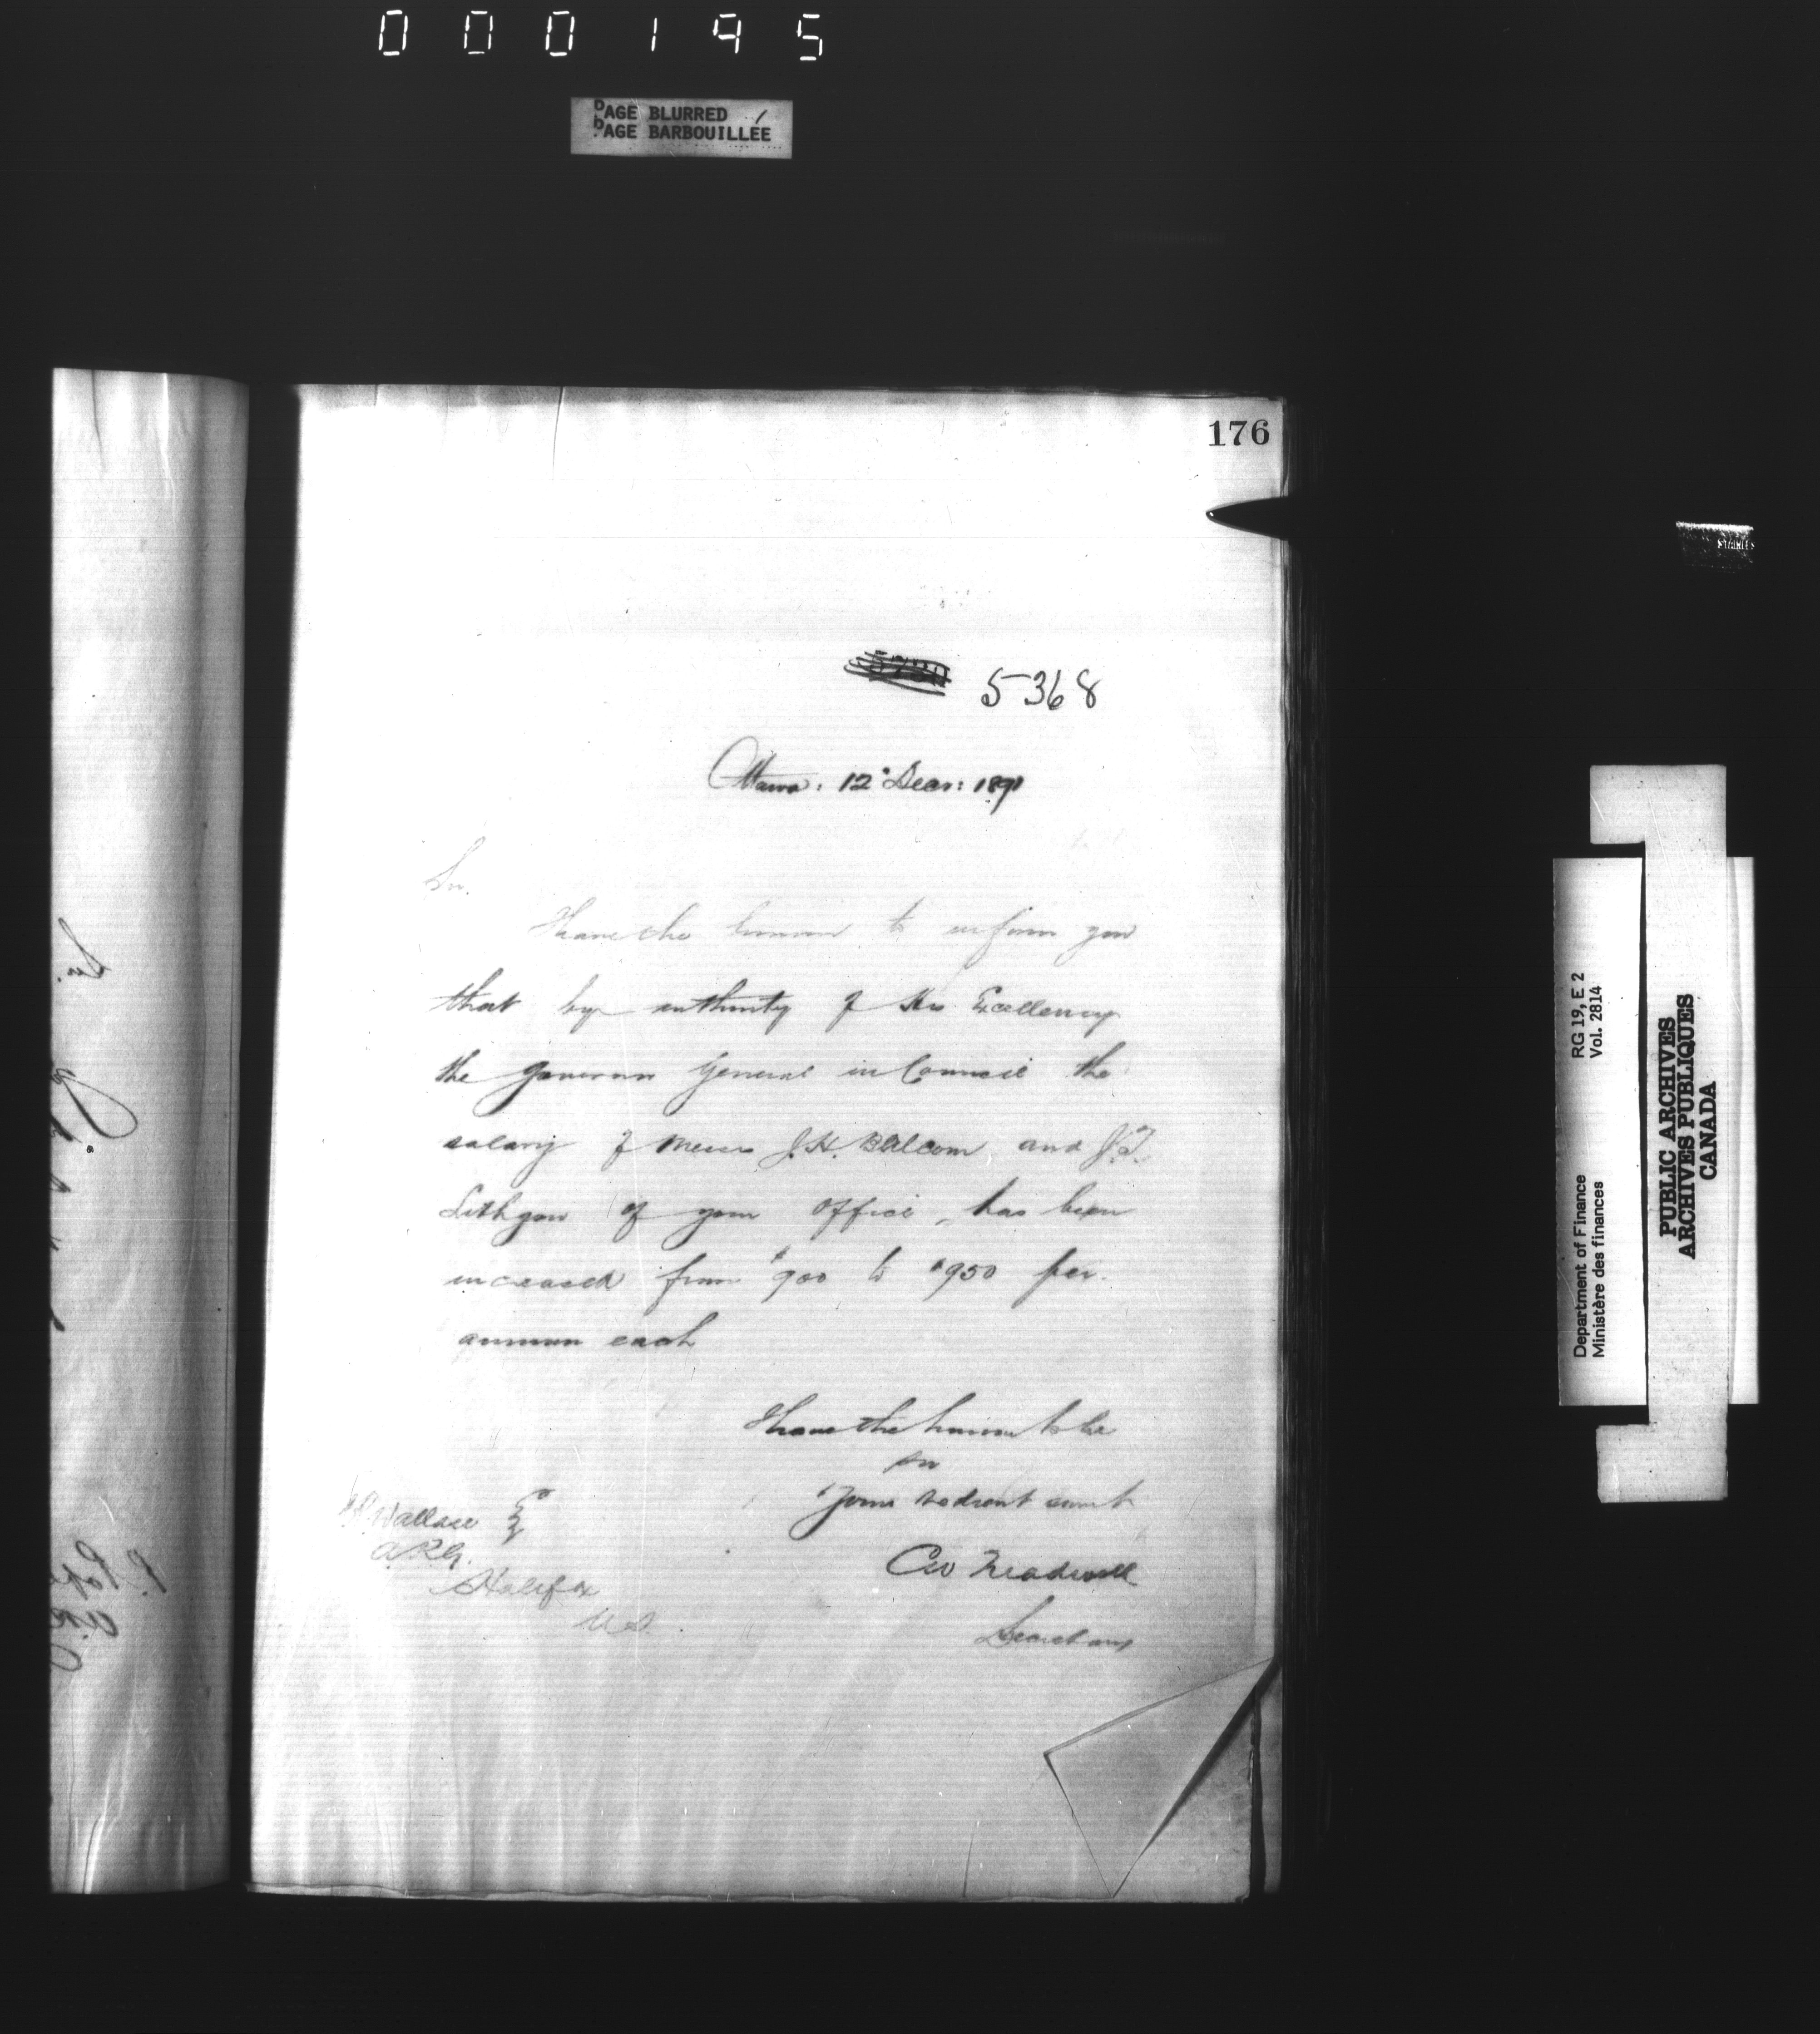 000195
PAGE BLURRED
PAGE BARBOUILLÉE
176
5368
Ottawa: 12 Decr: 1891
Sir.
I have the honour to inform you
that by authority of His Excellency
the Governor General in Council the
salary of Messrs J.H. Balcom and J.T.
Lithgow of your office, has been
increased from $900 to $950 per
annum each
I have the honour to be
Sir
Your obedient servt
Wallace
A.R.G.
Halifax
N.S.
Treadwell
Secretary
Department of Finance RG 19, E 2
Ministère des finances Vol. 2814
PUBLIC ARCHIVES
ARCHIVES PUBLIQUES
CANADA